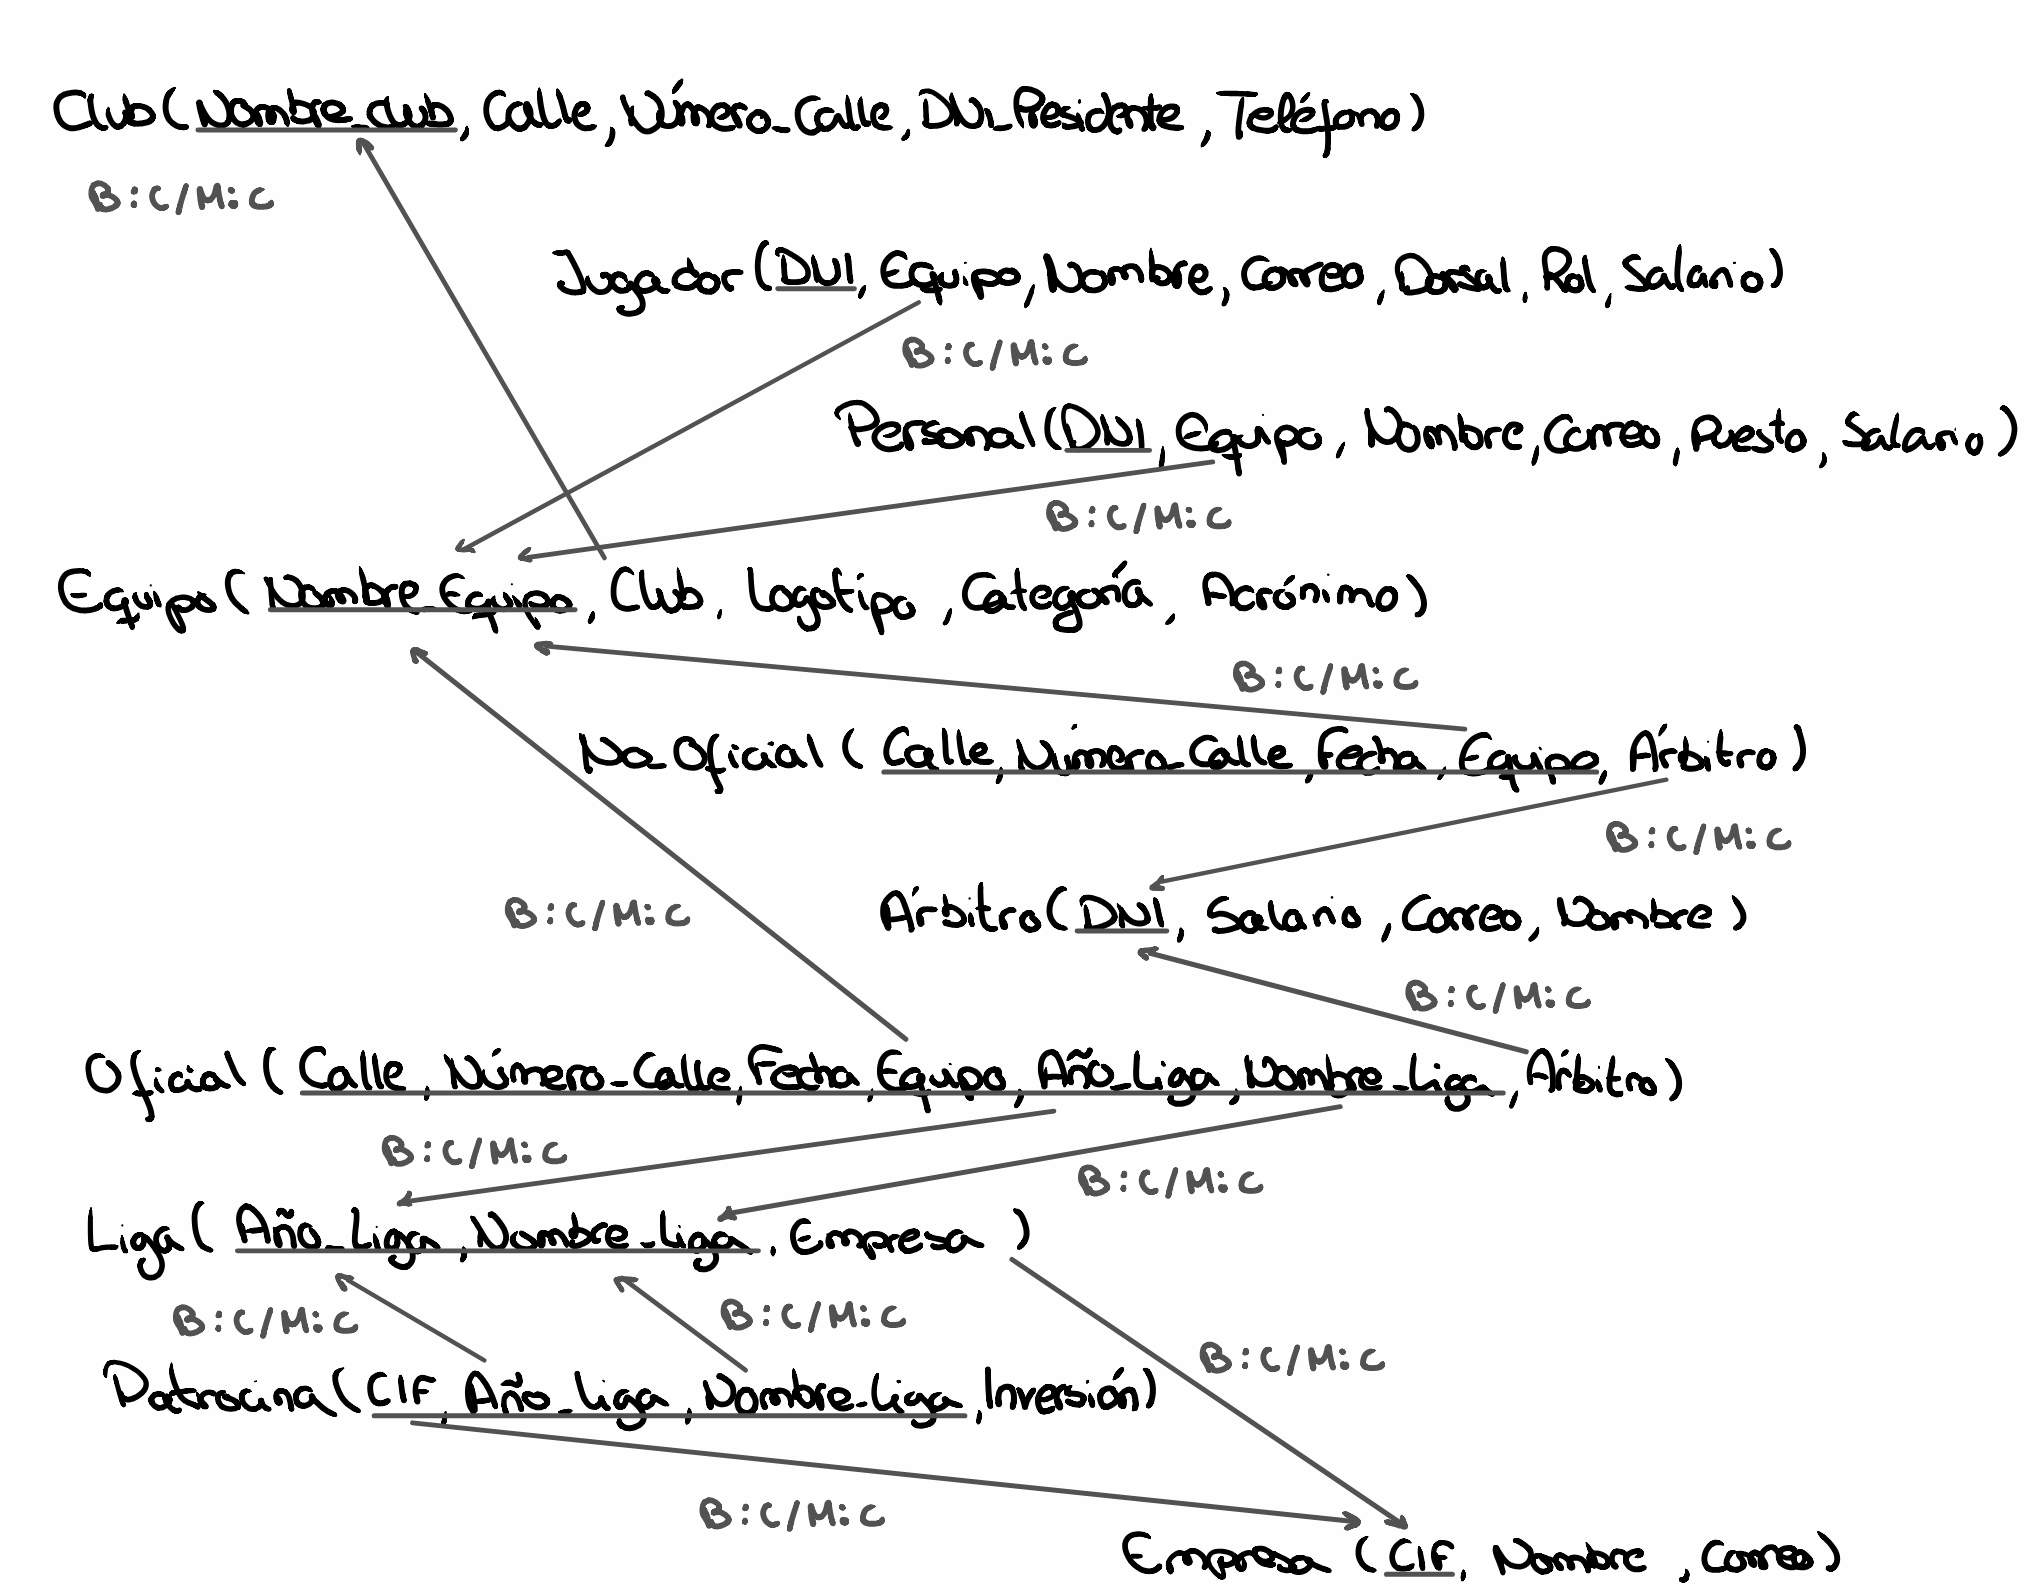 Club (Nombre_club, Calle, Número_Calle, DNI_Presidente, Teléfono)
B:C/M:C
Jugador (DNI, Equipo, Nombre, Correo, Dorsal, Rol, Salario)
B:C/M:C
Personal (DNI, Equipo, Nombre, Correo, Puesto, Salario)
B:C/M:C
Equipo (Nombre_Equipo, Club, Logotipo, Categoría, Acrónimo)
B:C/M:C
No_Oficial (Calle, Número_Calle, Fecha, Equipo, Árbitro)
B:C/M:C
B:C/M:C
Árbitro (DNI, Salario, Correo, Nombre)
B:C/M:C
Oficial (Calle, Número_Calle, Fecha, Equipo, Año_Liga, Nombre_Liga, Árbitro)
B:C/M:C
B:C/M:C
Liga (Año_Liga, Nombre_Liga, Empresa)
B:C/M:C
B:C/M:C
B:C/M:C
Patrocina (CIF, Año_Liga, Nombre_Liga, Inversión)
B:C/M:C
Empresa (CIF, Nombre, Correo)